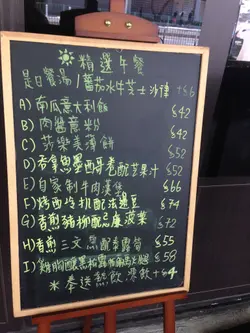 精選午餐
是日餐湯/蕃茄水牛芝士沙律 +$6
A) 南瓜意大利飯 $42
B) 肉醬意粉 $42
C) 莎樂美薄餅 $52
D) 香草魚墨西哥卷配芒果汁 $52
E) 自家制牛肉漢堡 $66
F) 烤西冷扒配法邊豆 $74
G) 香煎豬柳配忌廉菠菜 $72
H) 香煎三文魚配 $55
I) 雞胸釀黑松露 $58
* 奉送熱飲 凍飲+$4